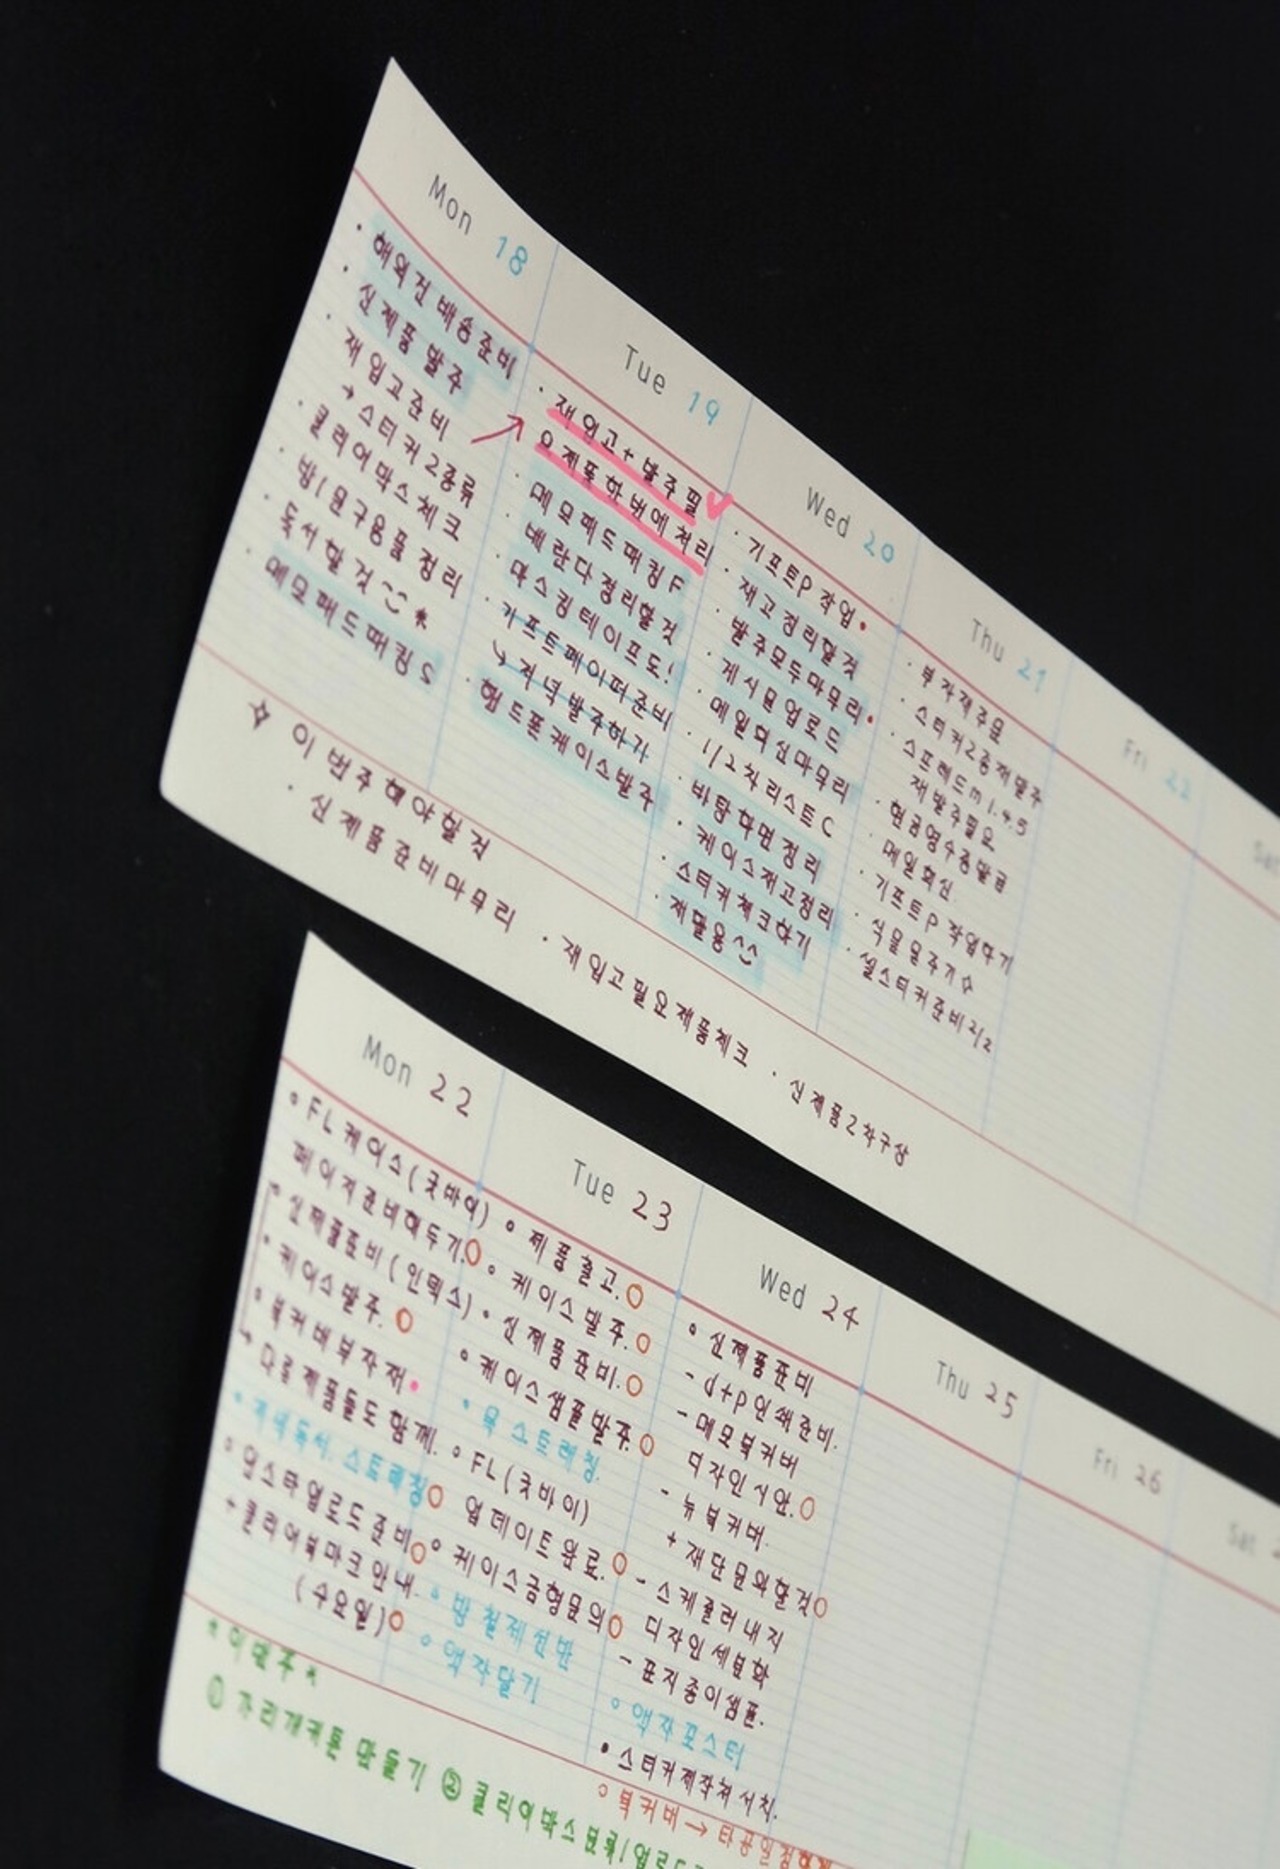 Mon 18
· 해외건 배송준비
· 신제품 발주
· 재입고준비
→ 스티커 2종류
· 클리어박스 체크
· 방/원구용품 정리
· 독서할 것
· 메모패드패킹 S
Tue 19
· 재입고 + 발주필
요제품 한번에 처리
· 메모패드패킹 F
베란다 정리할 것
마스킹테이프도!
· 기프트페이퍼준비
↳ 저녁발주하기
· 핸드폰케이스발주
Wed 20
· 기프트P 작업
· 재고정리할 것
· 발주모두마무리
· 게시물업로드
· 메일회신마무리
· 1/2차리스트 C
· 바탕화면정리
· 케이스재고정리
· 스티커체크하기
· 재활용 ^^
Thu 21
· 부자재주문
· 스티커2종재발주
· 스프레드m 1.4.5
재발주필요
· 현금영수증발급
· 메일회신
· 기프트P 작업하기
· 식물물주기☆
· 씰스티커준비 2/2
Fri 22
Sat
☆ 이번주 해야할 것
· 신제품준비마무리 · 재입고필요제품체크 · 신제품2차구상
Mon 22
FL 케이스(굿바이)
페이지준비해두기.
신제품준비(인덱스)
케이스발주.
북커버부자재
다른제품들도 함께.
독서. 스트레칭
인스타업로드준비
+ 클리어북마크안내.
(수요일)
Tue 23
제품출고.
케이스발주.
신제품준비.
케이스샘플발주.
목 스트레칭.
FL(굿바이)
업데이트완료.
케이스금형문의
방 철제선반
액자달기
Wed 24
신제품준비
- d+p인쇄준비.
- 메모북커버
디자인시안.
- 뉴북커버.
+ 재단문의할것
- 스케쥴러내지
디자인세분화
- 표지종이샘플.
액자포스터
• 스티커제작처서치.
북커버 → 타공일정
Thu 25
Fri 26
Sat
* 이번주 *
① 가리개커튼 만들기 ② 클리어박스